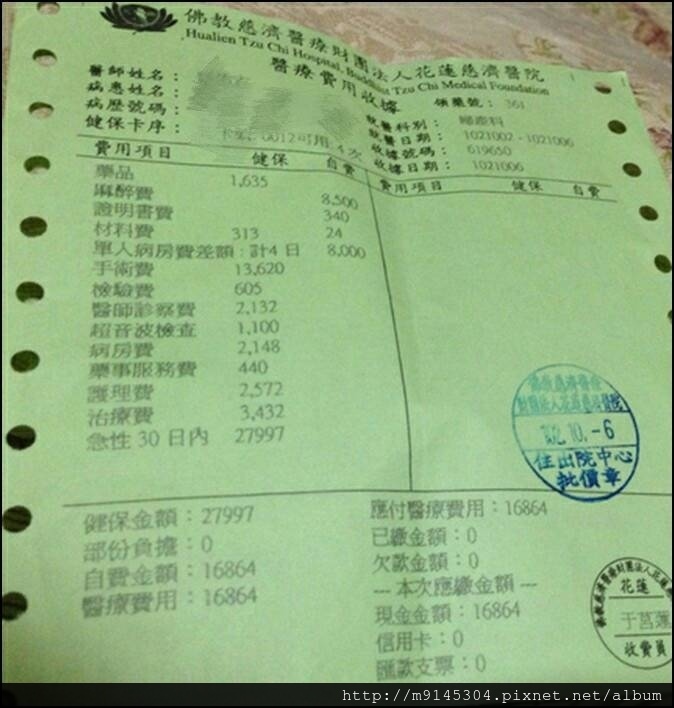 佛教慈濟醫療財團法人花蓮慈濟醫院
Hualien Tzu Chi Hospital, Buddhist Tzu Chi Medical Foundation
醫療費用收據
領藥號： 361
醫師姓名：
病患姓名：
病歷號碼：
健保卡序： 0012可用 4次
就醫科別： 婦產科
就醫日期： 1021002 - 1021006
收據號碼： 619650
收據日期： 1021006
費用項目 健保 自費 費用項目 健保 自費
藥品 1,635
麻醉費 8,500
證明書費 340
材料費 313 24
單人病房費差額：計4 日 8,000
手術費 13,620
檢驗費 605
醫師診察費 2,132
超音波檢查 1,100
病房費 2,148
藥事服務費 440
護理費 2,572
治療費 3,432
急性 30 日內 27997
佛教慈濟醫療
財團法人花蓮慈濟醫院
102.10.-6
住出院中心
批價章
健保金額：27997
部份負擔：0
自費金額：16864
醫療費用：16864
應付醫療費用：16864
已繳金額：0
欠款金額：0
--- 本次應繳金額 ---
現金金額：16864
信用卡：0
匯款支票：0
佛教慈濟醫療財團法人花蓮
花蓮
于莒蓮
收費員
http://m9145304.pixnet.net/album